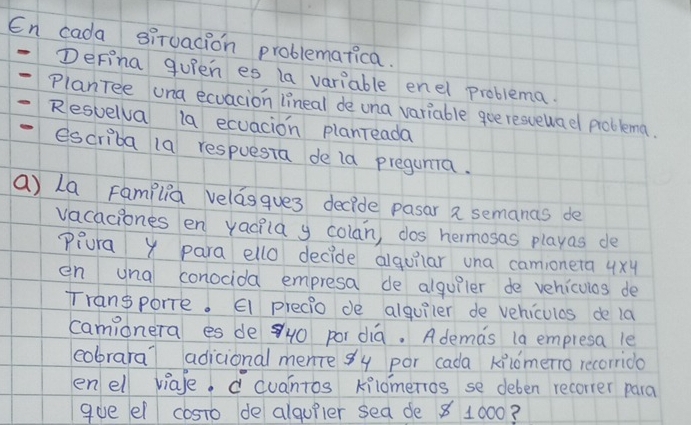 En cada situación problematica.
- Defina quien es la variable en el problema.
- Plantee una ecuación lineal de una variable que resuelva el problema.
- Resuelva la ecuación planteada
- escriba la respuesta de la pregunta.
a) La Familia velásques decide pasar 2 semanas de
vacaciones en yacila y colan, dos hermosas playas de
Piura y para ello decide alquilar una camioneta 4x4
en una conocida empresa de alquiler de vehículos de
Transporte. El precio de alquiler de vehículos de la
camioneta es de $40 por día. Además la empresa le
cobrara adicional mente $4 por cada Kilómetro recorrido
en el viaje. ¿ cuántos Kilómetros se deben recorrer para
que el costo de alquiler sea de $ 1000?